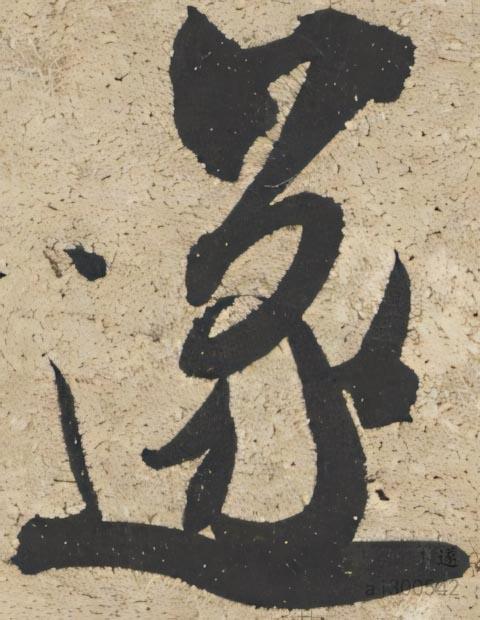 遂
遂
a.i300542